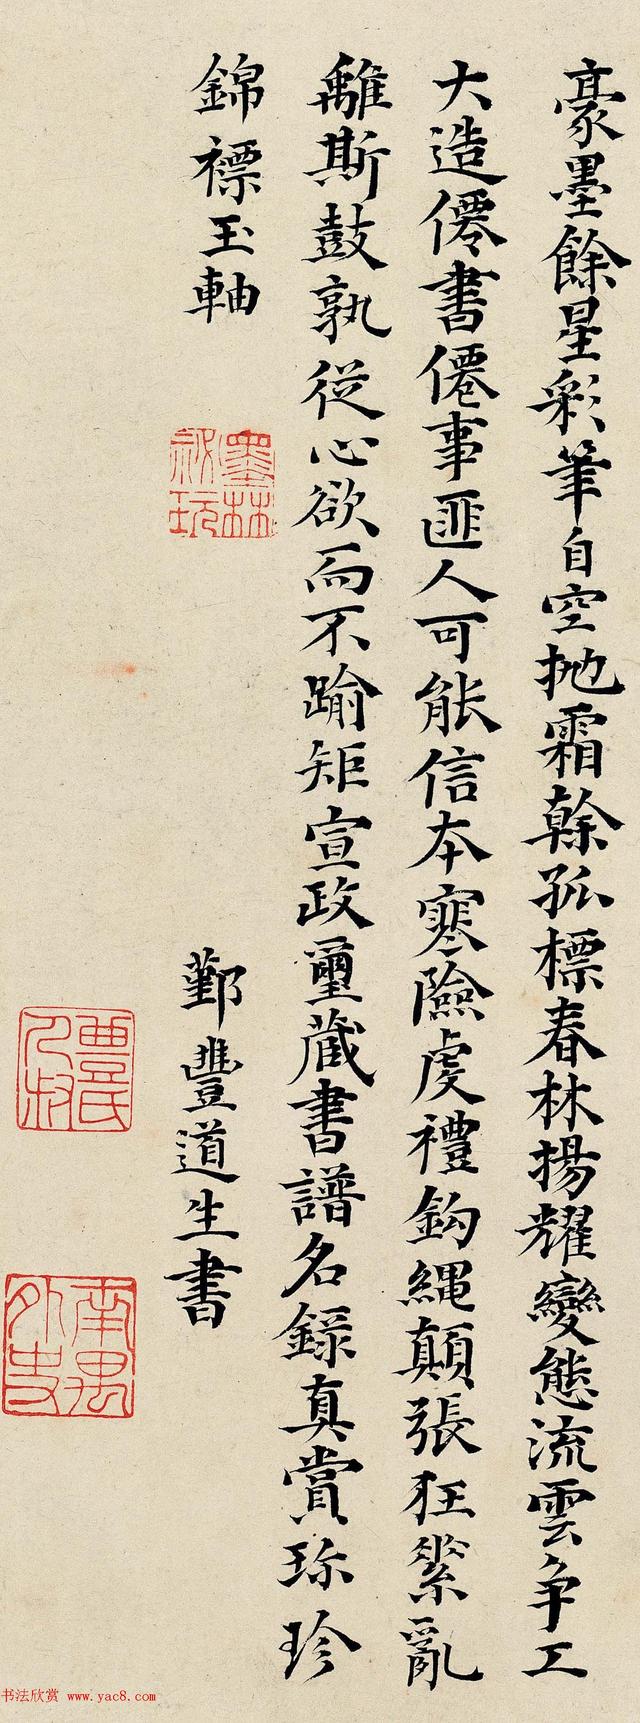 豪墨餘星彩筆自空抛霜榦孤標春林揚耀變態流雲争工
大造僊書僊事匪人可能信本寒險虔禮鈎繩顛張狂素亂
離斯鼓孰從心欲而不踰矩宣政璽藏書譜名錄真賞珎珍
錦褾玉軸
墨林
祕玩
鄞豐道生書
豐氏
人叔
南禺
外史
书法欣赏 www.yac8.com